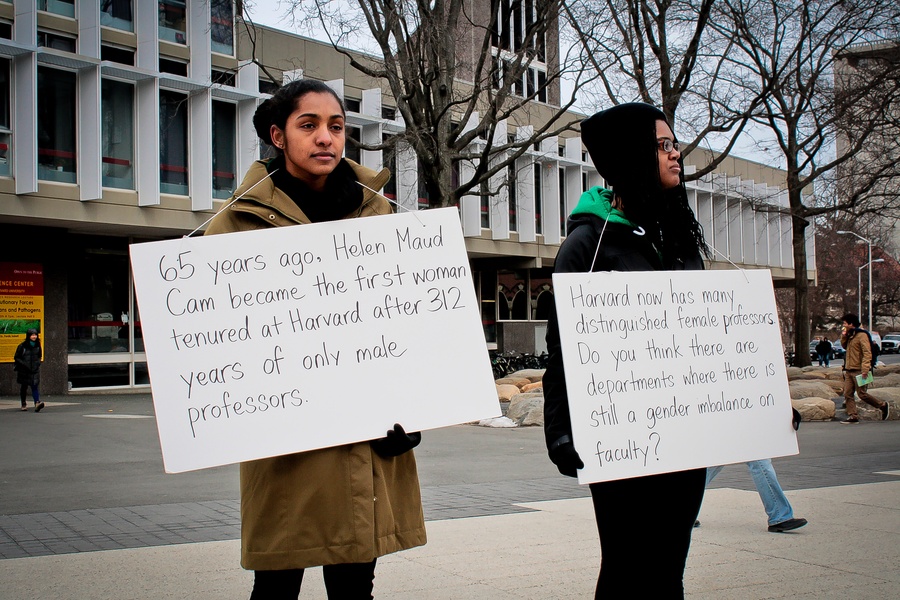 65 years ago, Helen Maud
Cam became the first woman
tenured at Harvard after 312
years of only male
professors.
Harvard now has many
distinguished female professors.
Do you think there are
departments where there is
still a gender imbalance on
faculty?
ENCE CENTER
and Pathogens